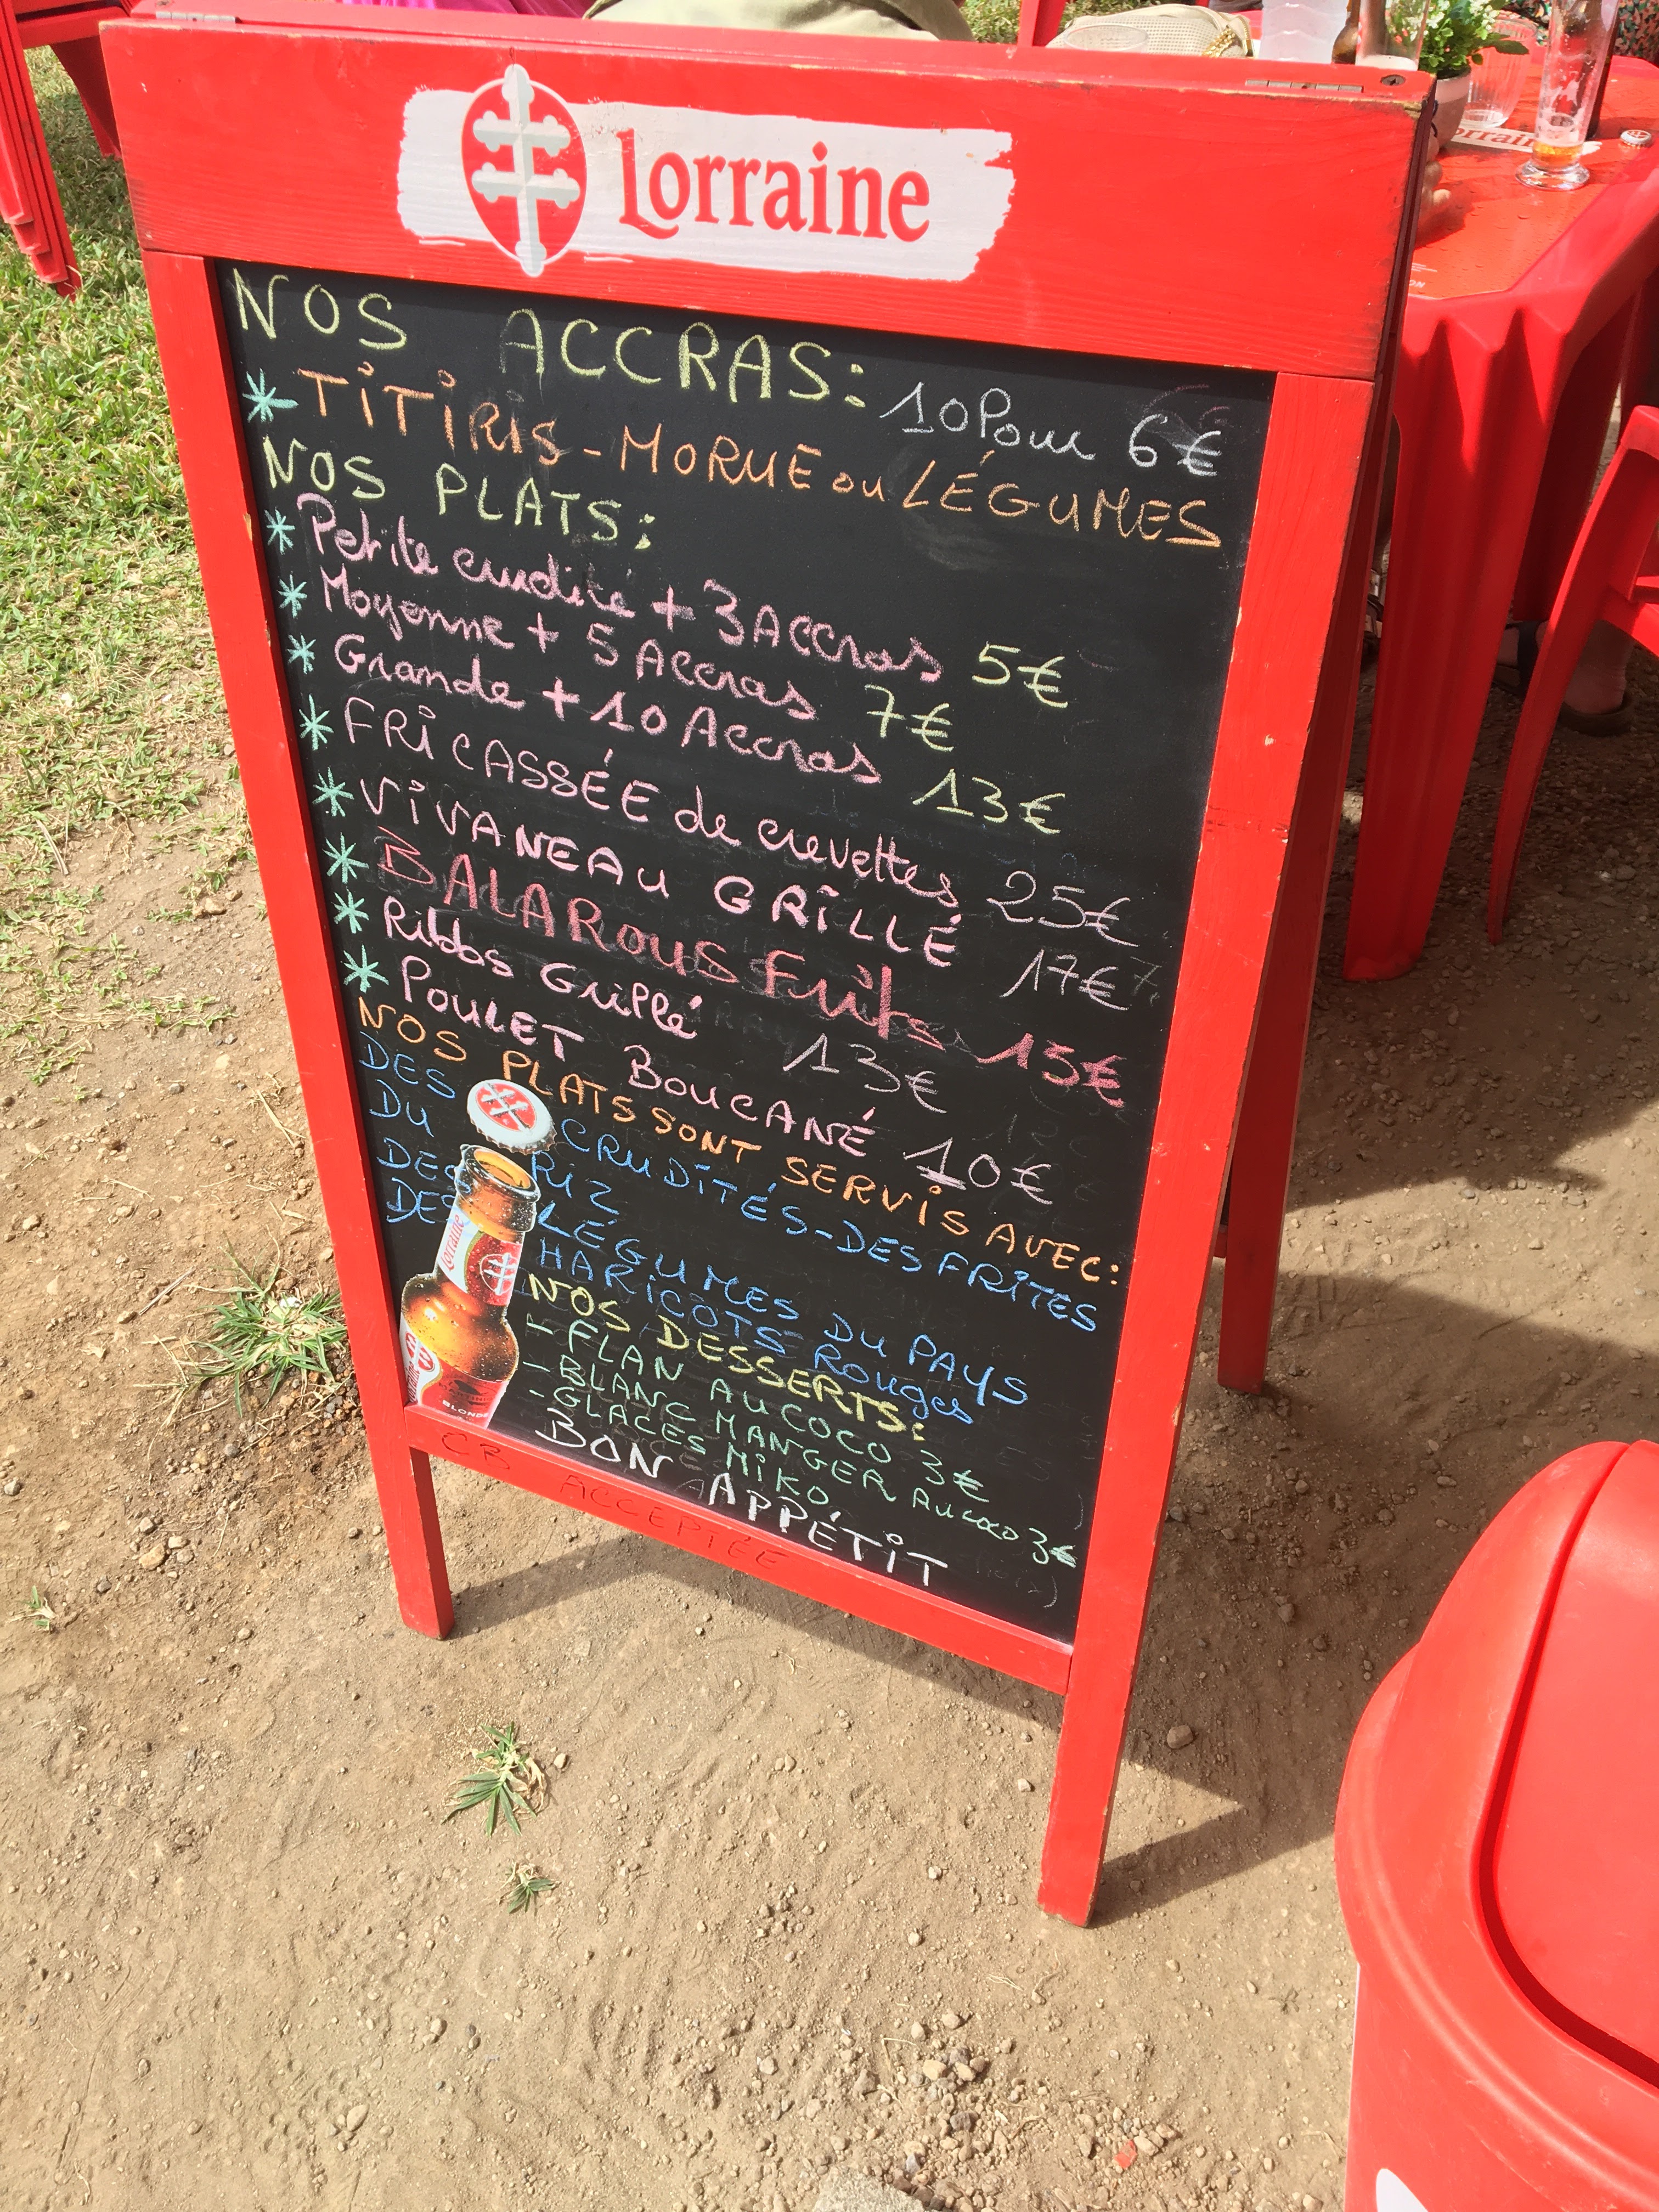 Lorraine
NOS ACCRAS: 10 Pour 6€
* TiTiRiS - MORUE ou LÉGUMES
NOS PLATS:
* Petite crudité + 3 Accras 5€
* Moyenne + 5 Accras 7€
* Grande + 10 Accras 13€
* FRiCASSÉE de crevettes 25€
* ViVANEAU GRiLLÉ 17€
* BALAROUS Frits 15€
* Ribbs Grillé 13€
* POULET BOUCANÉ 10€
NOS PLATS SONT SERVIS AVEC:
DES CRUDiTÉS - DES FRiTES
DU RiZ
DES LÉGUMES DU PAYS
DES HARiCOTS ROUGES
NOS DESSERTS:
- FLAN AU COCO 3€
- BLANC MANGER AU COCO 3€
- GLACES MiKO
BON APPÉTiT
CB ACCEPTÉE
Lorraine
BLONDE